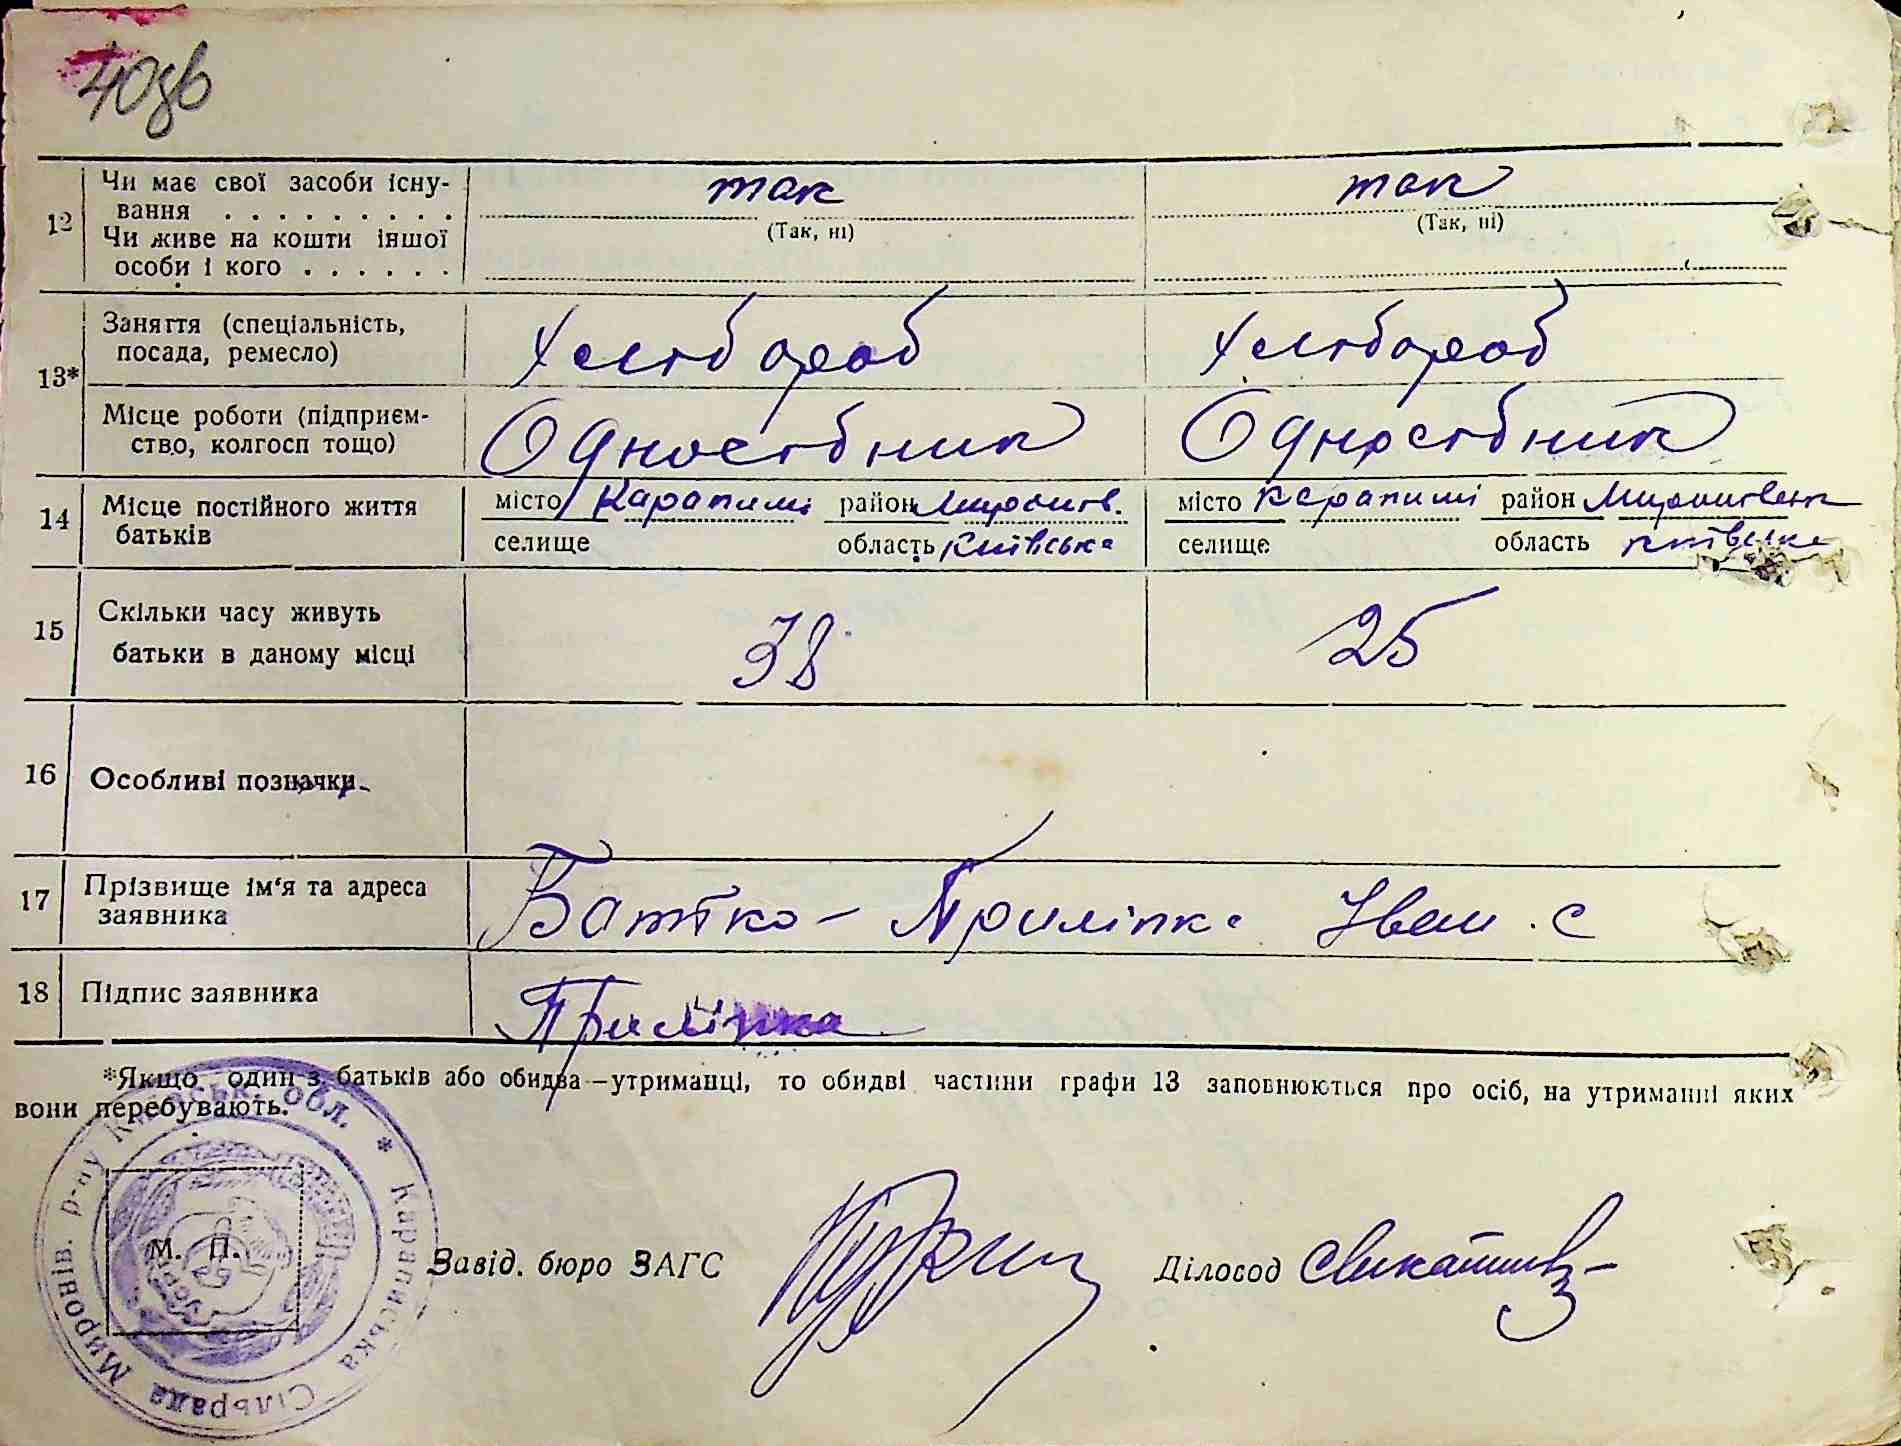 40зв
12 Чи має свої засоби існу- так так
вання . . . . . . . . . (Так, ні) (Так, ні)
Чи живе на кошти іншої
особи і кого . . . . . .
13* Заняття (спеціальність, Хлібороб Хлібороб
посада, ремесло)
Місце роботи (підприєм- Одноосібник Одноосібник
ство, колгосп тощо)
14 Місце постійного життя місто Карапиші район Миронів. місто Карапиші район Миронівськ
батьків селище область Київська селище область Київська
15 Скільки часу живуть 38 25
батьки в даному місці
16 Особливі позначки
17 Прізвище ім'я та адреса Батько - Приліпка Іван . С
заявника
18 Підпис заявника Приліпка
*Якщо один з батьків або обидва—утриманці, то обидві частини графи 13 заповнюються про осіб, на утриманні яких
вони перебувають.
Миронів. р-ну Київськ. обл. * Караписька Сільрада
УСРР
М. П.
Завід. бюро ЗАГС Діловод